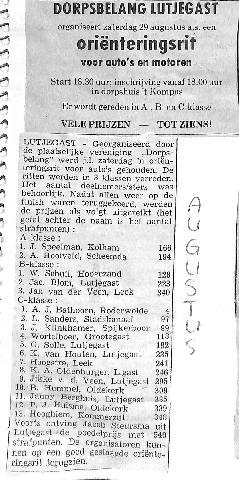 DORPSBELANG LUTJEGAST
organiseert zaterdag 29 augustus a.s. een
oriënteringsrit
voor auto's en motoren
Start 18.30 uur; inschrijving vanaf 18.00 uur
in dorpshuis 't Kompas
Er wordt gereden in A-, B- en C-klasse
VELE PRIJZEN TOT ZIENS!
LUTJEGAST - Georganiseerd door
de plaatselijke vereniging „Dorps-
belang" werd j.l. zaterdag 'n oriën-
teringsrit voor auto's gehouden. De
ritten werden in 3 klassen verreden.
Het aantal deelnemersters was
behoorlijk. Nadat allen weer op de
finish waren teruggekeerd, werden
de prijzen als volgt uitgereikt (het
getal achter de naam is het aantal
strafpunten):
A klasse:
1. J. Speelman, Kolham 166
2. A. Hooiveld, Scheemda 194
B-klasse:
1. W. Schuil, Hoogezand 128
2. Jac. Blom, Lutjegast 233
3. Jan van der Veen, Leek 340
C-klasse:
1. A. J. Balhoorn, Roderwolde 4
2. L. Sanders, Stadskanaal 97
3. J. Klinkhamer, Spijkerboor 99
4. Wortelboer, Grootegast 113
5. G. Solle, Lutjegast 192
6. K. van Houten, Lutjegast 235
7. Hoogstra, Leek 241
8. K. A. Oldenburger, Lutjegast 246
9. Jikke v. d. Veen, Lutjegast 295
10. B. Hummel, Oldekerk 309
11. Janny Berghuis, Lutjegast 335
12. P. J. Huisma, Oldekerk 339
13. Hooghiem, Kommerzijl 343
Voorts ontving Jacob Steursma uit
Lutjegast de poedelprijs met 540
strafpunten. De organisatoren kun-
nen op een goed geslaagde oriënte-
ringsrit terugzien.
AUGUSTUS